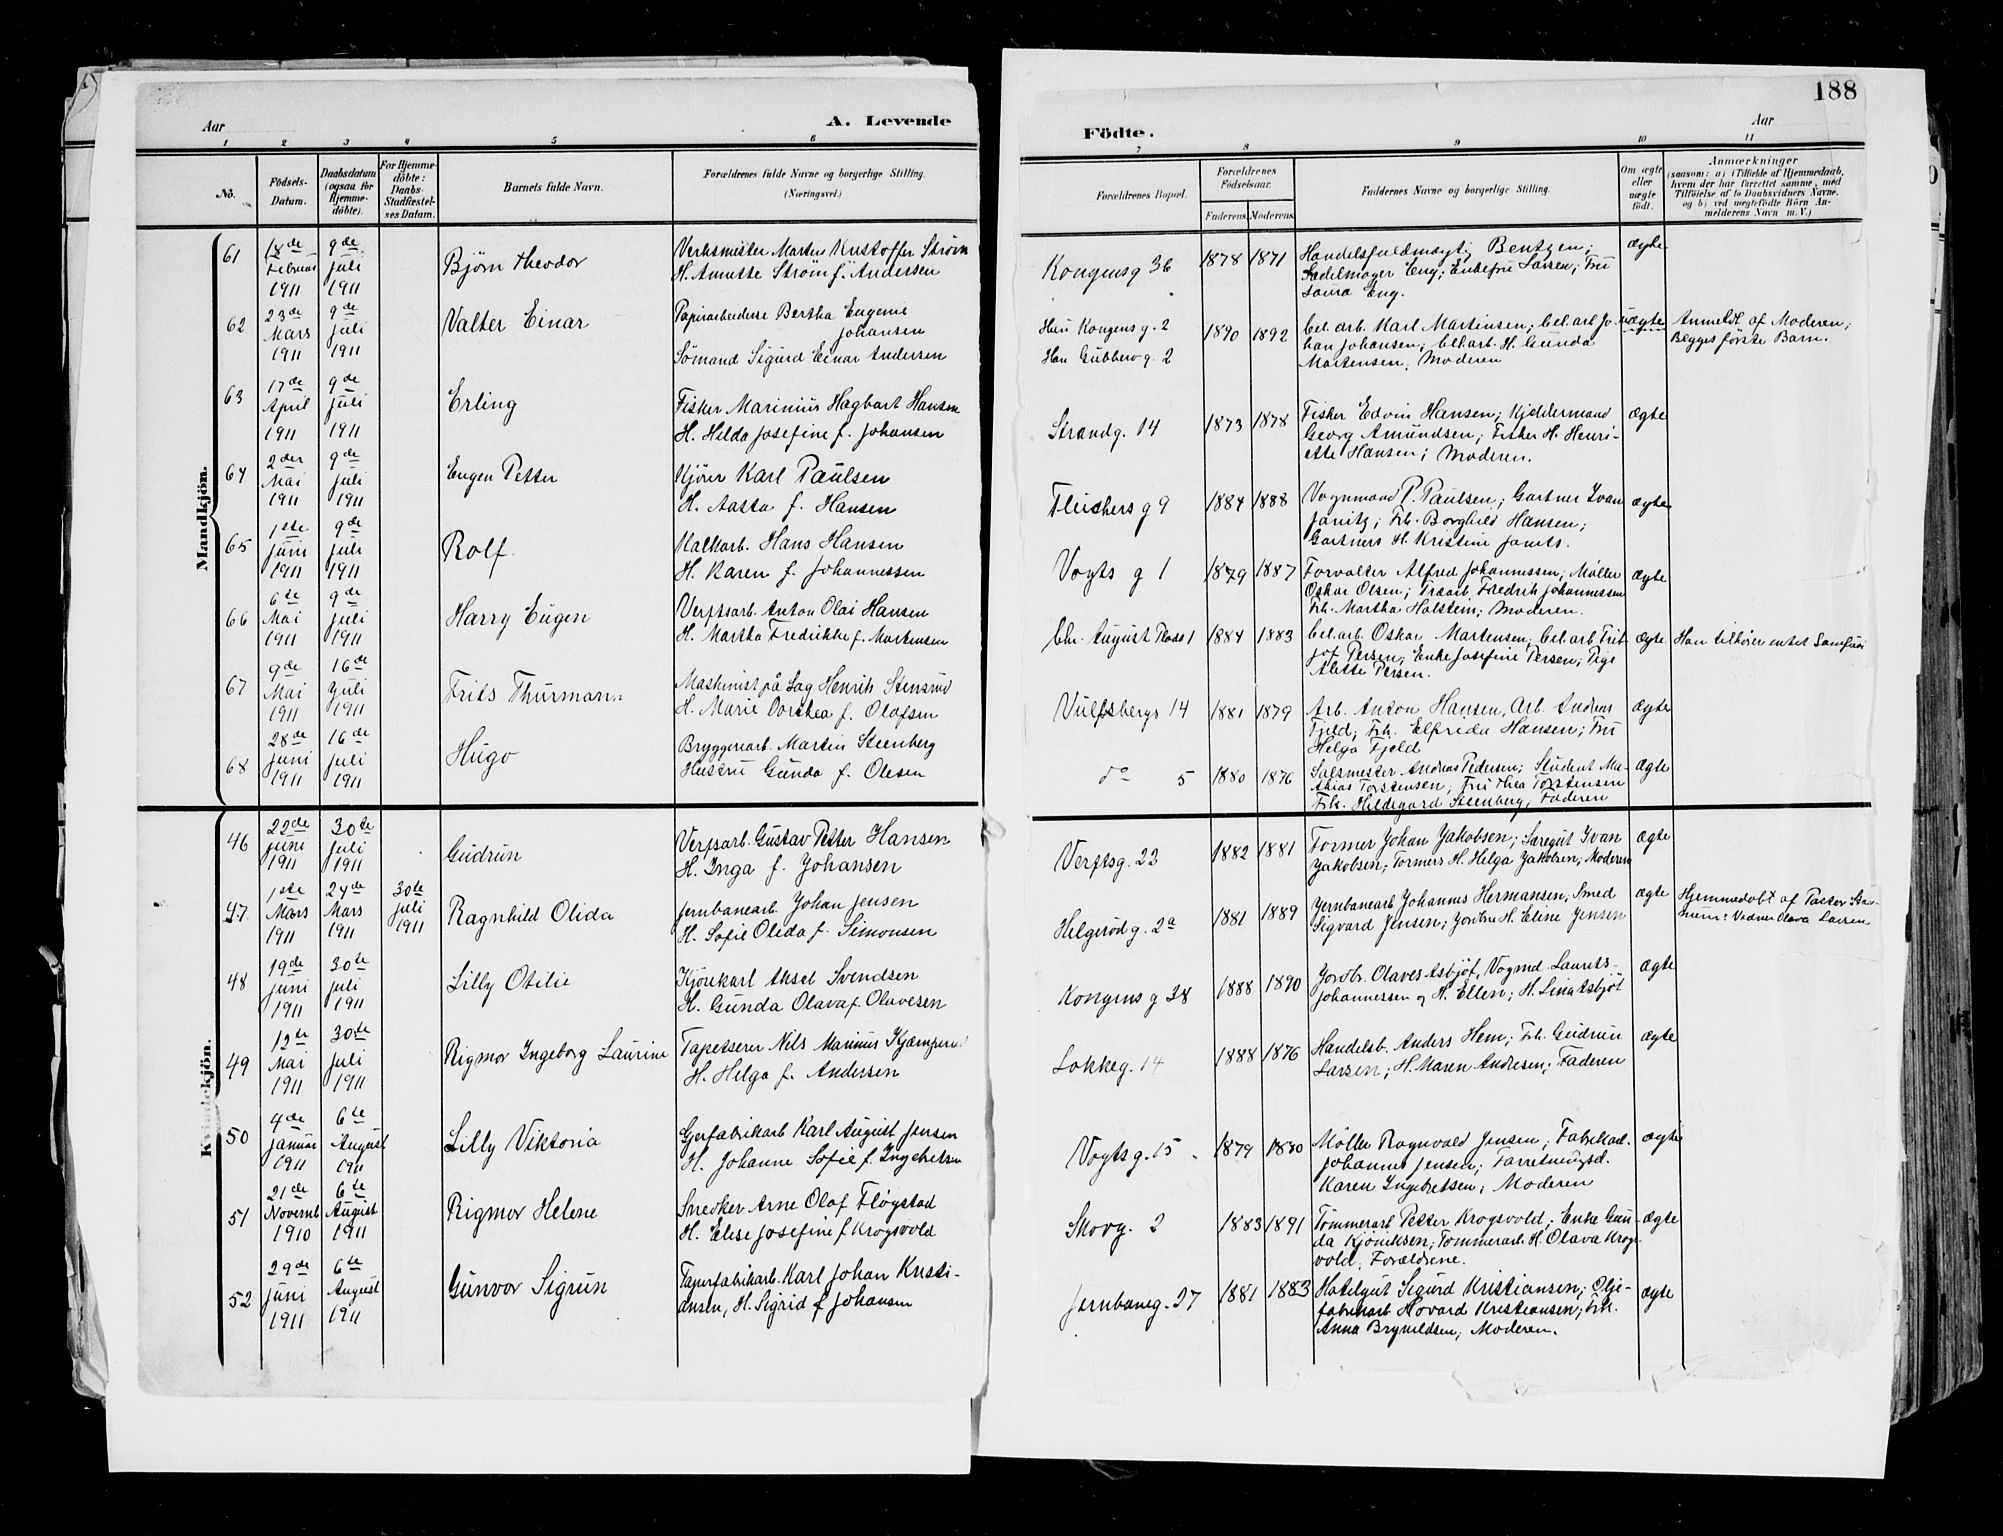 188
Aar
A. Levende
Födte.
Aar
1 2 3 4 5 6
7 8 9 10 11
No.
Födsels-Datum.
Daabsdatum (ogsaa for Hjemmedöbte).
For Hjemmedöbte: Daabs-Stadfæstelses Datum.
Barnets fulde Navn.
Forældrenes fulde Navne og borgerlige Stilling. (Næringsvei.)
Forældrenes Bopæl.
Forældrenes Födselsaar.
Faderens. Moderens.
Faddernes Navne og borgerlige Stilling.
Om ægte eller uægte födt.
Anmærkninger
(saasom: a) i Tilfælde af Hjemmedaab,
hvem der har forrettet samme, med
Tilföielse af to Daabsvidners Navne.
og b) ved uægtefödte Börn Anmelderens Navn m. V.)
Mandkjön.
61 18de Februar 1911 9de Juli 1911 Bjørn Theodor
Verksmester Martin Kristoffer Strøm
H. Annette Strøm f. Andersen
Kongensg 36 1878 1871
Handelsfuldmægtig Bentzen;
Sadelmager Eng; Enkefru Larsen; Fru
Laura Eng.
ægte
62 23de Mars 1911 9de Juli 1911 Valter Einar
Papirarbeiderse Bertha Eugenie
Johansen
Sömand Sigurd Einar Andersen
Hun Kongensg. 2
Han Gubberog. 2
1890 1892
Cel. arb. Karl Martinsen; Cel. arb Jo-
han Johansen; Cel. arb. H. Gunda
Martensen; Moderen
uægte
Anmeldt af Moderen;
Begges første Barn.
63 17de April 1911 9de Juli 1911 Erling
Fisker Marinius Hagbart Hansen
H. Hilda Josefine f. Johansen
Strandg. 14 1873 1878
Fisker Edvin Hansen; Kjeldermand
Georg Amundsen; Fisker H. Henri-
ette Hansen; Moderen.
ægte
64 2den Mai 1911 9de Juli 1911 Eugen Petter
Kjører Karl Paulsen
H. Aasta f. Hansen
Fleichersg 9 1884 1888
Vognmand P. Paulsen; Gartner Ivan
Janitz; Frk. Borghild Hansen;
Gartners H. Kristine Janits.
ægte
65 1ste Juni 1911 9de Juli 1911 Rolf
Kalkarb. Hans Hansen
H. Karen f. Johannessen
Vogts g 1 1879 1887
Forvalter Alfred Johannessen; Møller
Oskar Olsen; Træarb. Fredrik Johannessen
Frk. Martha Holstein; Moderen.
ægte
66 6te Mai 1911 9de Juli 1911 Harry Eugen
Verftsarb. Anton Olai Hansen
H. Martha Fredrikke f. Martensen
Chr. August Plads 1 1884 1883
Cel. arb. Oskar Martensen; Cel. arb Frit-
jof Persen; Enke Josefine Persen; Pige
Alette Persen.
ægte
Han tilhører intet Samfund
67 9de Mai 1911 16de Juli 1911 Frits Thurmann
Maskinist på Sag Henrik Stensrud
H. Marie Dorthea f. Olafsen
Vulfsbergs 14 1881 1879
Arb. Anton Hansen, Arb. Andreas
Fjeld; Frk. Elfrida Hansen; Fru
Helga Fjeld
ægte
68 28de Juni 1911 16de Juli 1911 Hugo
Bryggeriarb. Martin Steenberg
Hustru Gunda f. Olesen
do 5 1880 1876
Salsmester Andreas Pedersen; Student Ma-
thias Torstensen; Fru Thea Torstensen
Frk. Hildegard Steenberg, Faderen
ægte
Kvindekjön.
46 22de Juni 1911 30te Juli 1911 Gudrun
Verftsarb. Gustav Petter Hansen
H. Inga f. Johansen
Verftsg. 23 1882 1881
Former Johan Jakobsen; Saregut Ivan
Jakobsen; Formers H. Helga Jakobsen; Moderen
ægte
47 1ste Mars 1911 24de Mars 1911 30te Juli 1911 Ragnhild Olida
Jernbanearb. Johan Jensen
H. Sofie Olida f. Simonsen
Helgerödg. 2a 1881 1889
Jernbanearb Johannes Hermansen, Smed
Sigvard Jensen; Jordbr. H. Eline Jensen
ægte
Hjemmedöbt af Pastor
Olava Larsen
48 19de Juni 1911 30te Juli 1911 Lilly Otilie
Kjørekarl Aksel Svendsen
H. Gunda Olava f. Olavesen
Kongens g 38 1888 1890
Jordbr. Olaves Asbjøf, Vogmd. Laurits
Johannessen og H. Ellen; H. Lina Asbjöf
ægte
49 12te Mai 1911 30te Juli 1911 Rigmor Ingeborg Laurine
Tapetserer Nils Marinus Kjæmperud
H. Helga f. Andersen
Lokkeg. 14 1888 1876
Handelsb. Anders Hem; Frk. Gudrun
Larsen; H. Maren Andresen; Faderen
ægte
50 4de Januar 1911 6te August 1911 Lilly Viktoria
Gjerfabrikarb Karl August Jensen
H. Johanne Sofie f. Ingebretsen
Vogtsg. 15 1879 1880
Møller Ragnvald Jensen; Fabrikarb.
Johannes Jensen; Forretningsd.
Karen Ingebretsen; Moderen
ægte
51 21de Novemb 1910 6te August 1911 Rigmor Helene
Snedker Arne Olaf Fløgstad
H. Elise Josefine f Krogsvold
Skovg. 2 1883 1891
Tömmerarb Petter Krogsvold; Enke Gun-
da Kjöniksen; Tømmerarb. H. Olava Krogs-
vold, Forældrene.
ægte
52 29de Juni 1911 6te August 1911 Gunvor Sigrun
Papirfabrikarb. Karl Johan Kristi-
ansen, H. Sigrid f Johansen
Jernbaneg. 27 1881 1883
Hotelgut Sigurd Kristiansen; Olje-
fabrikarb Hovard Kristiansen; Frk.
Anna Brynildsen; Moderen.
ægte